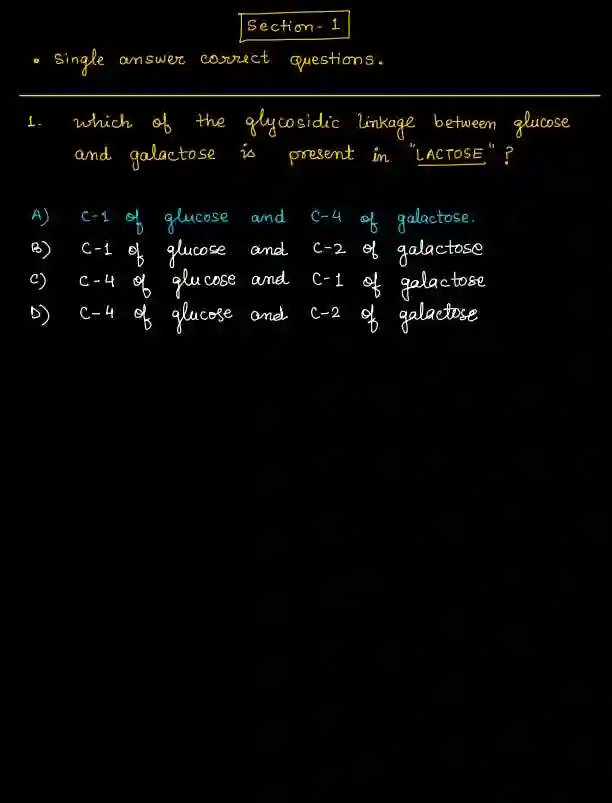 Section - 1
• Single answer correct questions.
1. which of the glycosidic linkage between glucose
and galactose is present in "LACTOSE" ?
A) C-1 of glucose and C-4 of galactose.
B) C-1 of glucose and C-2 of galactose
C) C-4 of glucose and C-1 of galactose
D) C-4 of glucose and C-2 of galactose